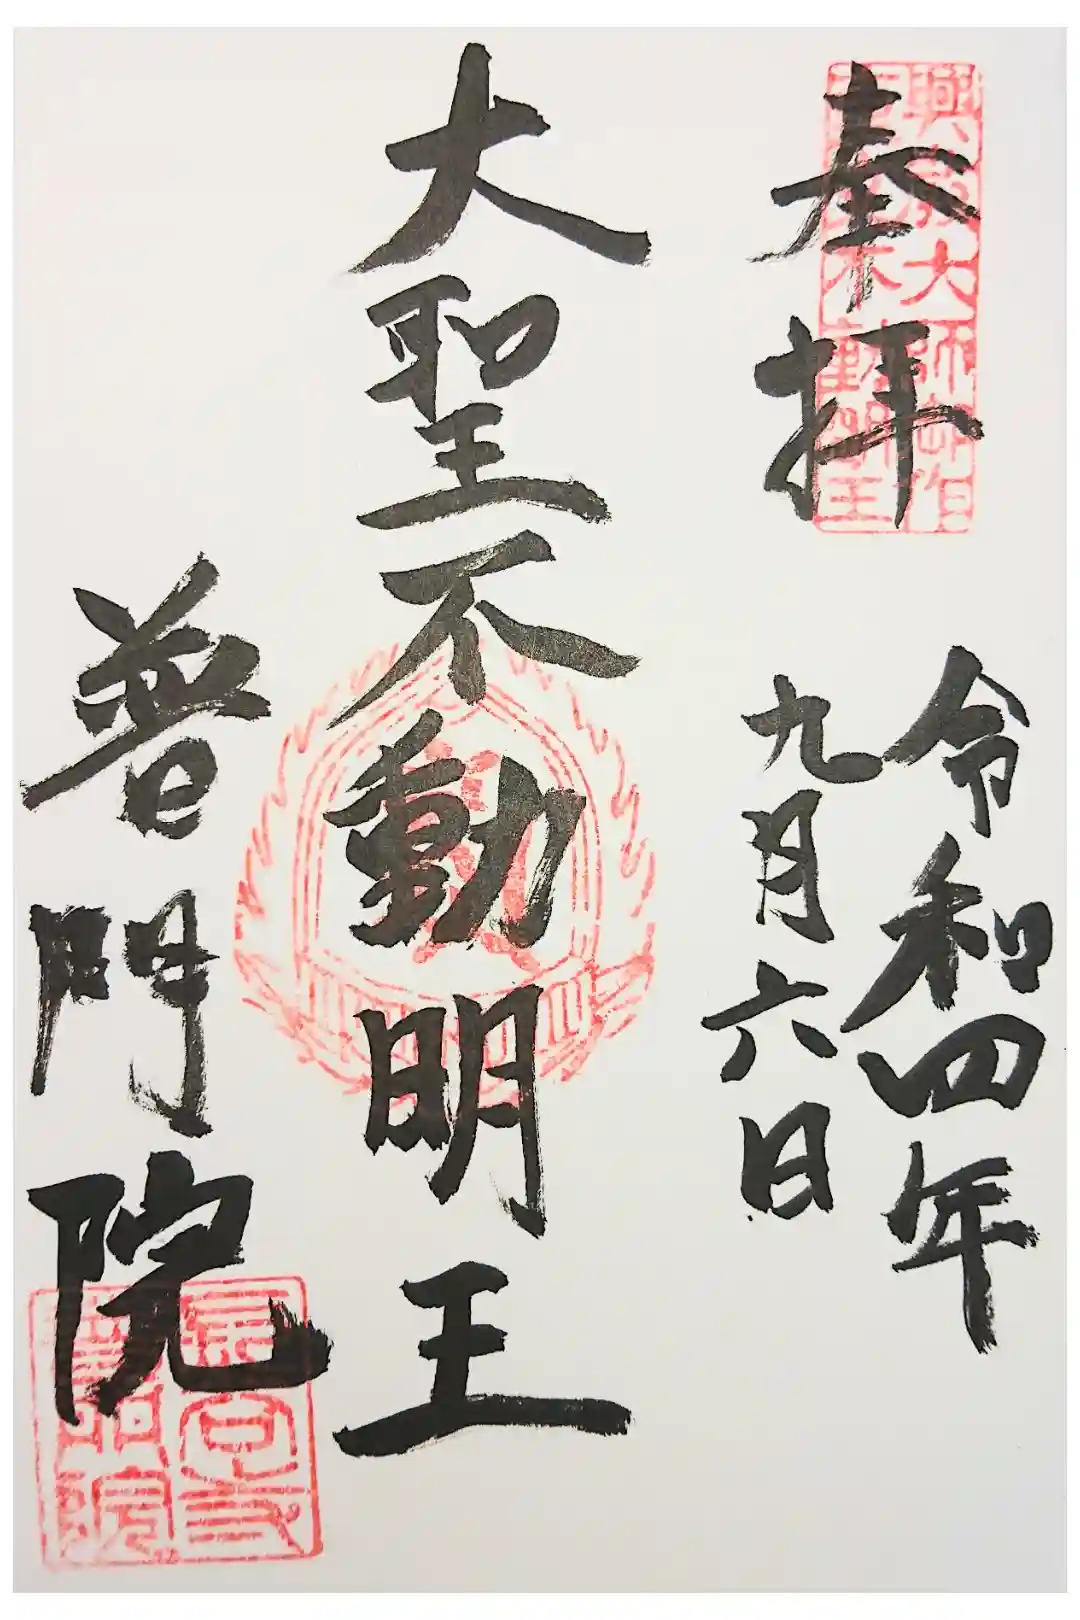 奉拝
令和四年
九月六日
大聖不動明王
普門院